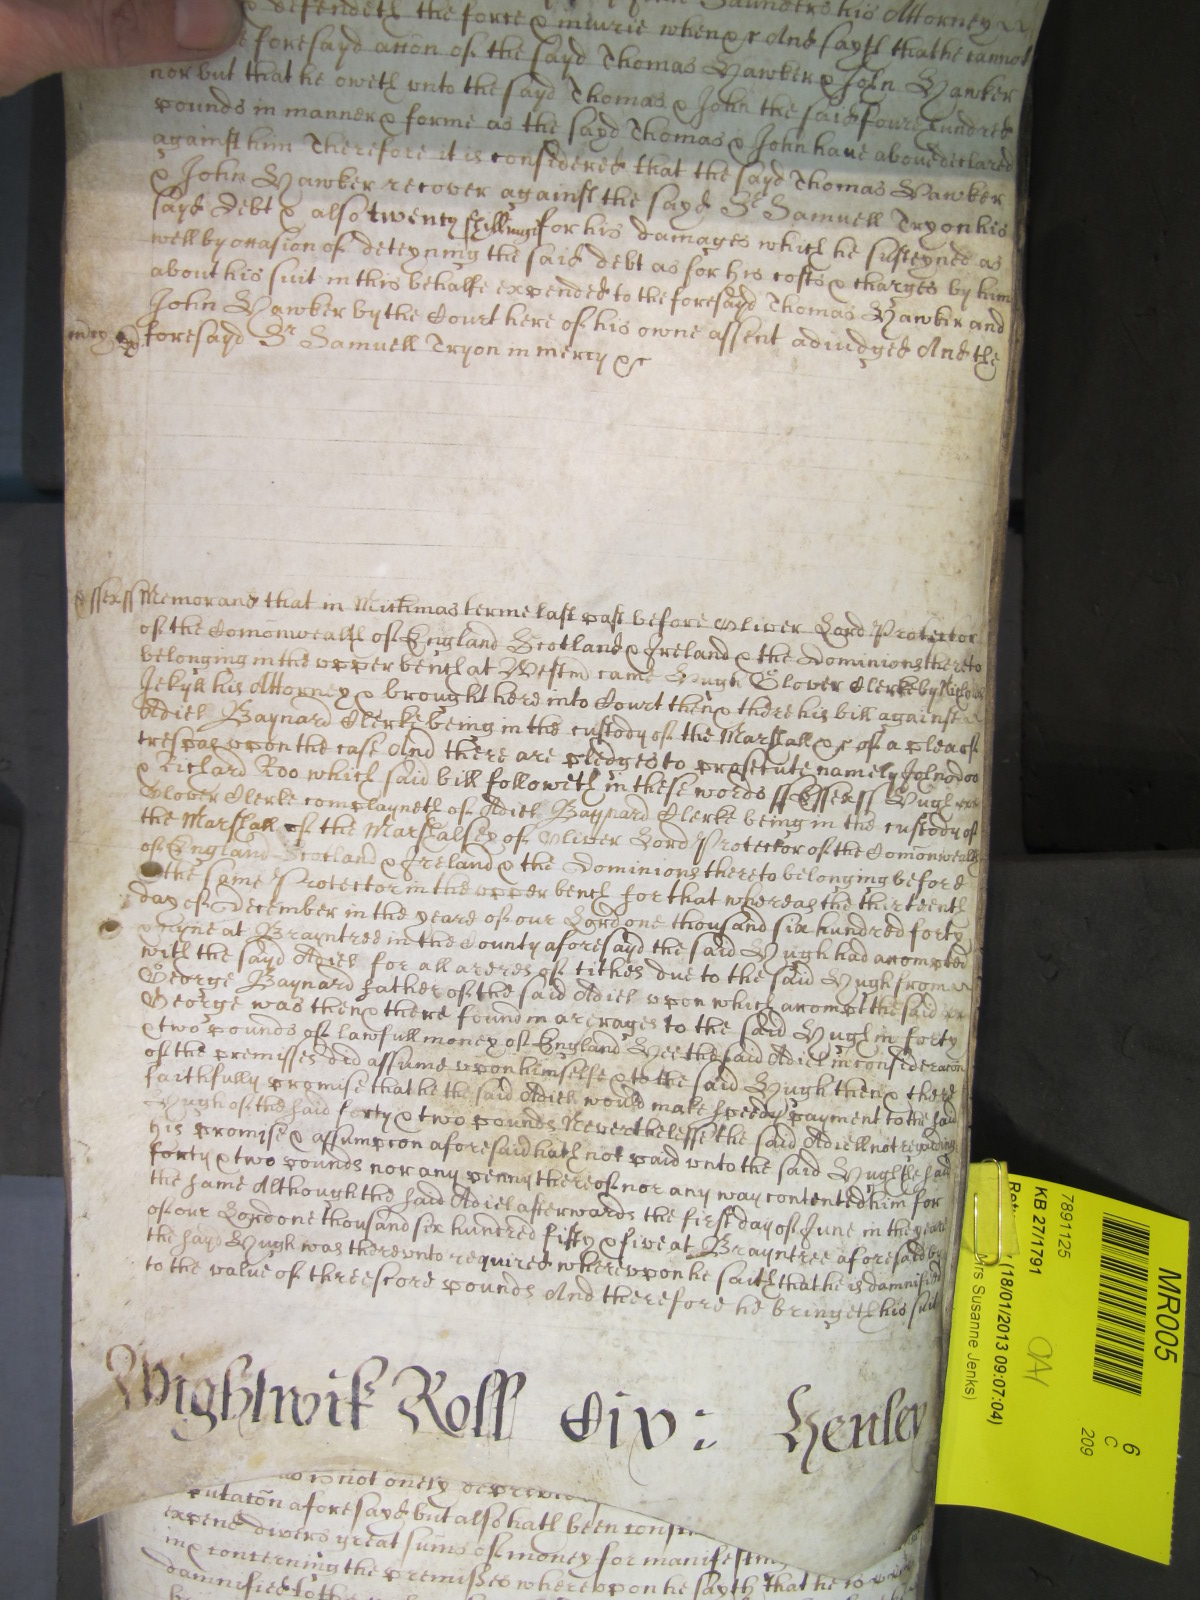 & defendeth the force & iniurie when &c And sayth that he cannot
foresayd accon of the sayd Thomas Hawker & John Hawker
nor but that he oweth vnto the sayd Thomas & John the said foure hundred
pounds in manner & forme as the sayd Thomas & John haue aboue declared
against him Therefore it is considered that the sayd Thomas Hawker
& John Hawker recover against the sayd Sr Samuell Tryon his
sayd debt & also twenty shillings for his damages which he susteyned as
well by occasion of deteyning the said debt as for his costs & charges by him
about his suit in this behalfe expended to the foresayd Thomas Hawker and
John Hawker by the Court here of his owne assent adiudged And the
foresayd Sr Samuell Tryon in mercy &c
Essex ss Memorand that in Michmas terme last past before Oliver Lord Protector
of the Comonwealth of England Scotland & Ireland & the Dominions thereto
belonging in the vpper bench at Westm came Hugh Glover Clerke by
Jekyll his Attorney & brought here into Court then & there his bill against
Adiel Baynard Clerke being in the custody of the Marshall &c of a plea of
trespas vpon the case And there are pledges to prosecute namely John Doo
& Richard Roo which said bill followeth in these words ss Essex ss Hugh
Glover Clerke complayneth of Adiel Baynard Clerke being in the custody of
the Marshall of the Marshalsey of Oliver Lord Protector of the Comonwealth
of England Scotland & Ireland & the Dominions thereto belonging before
the same Protector in the vpper bench for that whereas the thirteenth
day of December in the yeare of our Lord one thousand six hundred forty
& nyne at Brayntree in the County aforesayd the said Hugh had accompted
with the sayd Adiel for all areres of tithes due to the said Hugh from
George Baynard father of the said Adiel vpon which accompt the said
George was then & there found in arerages to the said Hugh in forty
& two pounds of lawfull money of England Hee the said Adiel in consideracon
of the premisses did assume vpon himselfe & to the said Hugh then & there
faithfully promise that he the said Adiel would make speedy payment to the said
Hugh of the said forty & two pounds Neverthelesse the said Adiell not regarding
his promise & assumpcon aforesaid hath not paid vnto the said Hugh the said
forty & two pounds nor any penny thereof nor any way contented him for
the same Although the said Adiel afterwards the first day of June in the yeare
of our Lord one thousand six hundred fifty & five at Brayntree aforesaid by
the sayd Hugh was therevnto required wherevpon he saith that he is damnified
to the value of threescore pounds And therefore he bringeth his suit
Wightwik Roll Civ: Henley
not onely
aforesayd but also hath been
expend divers great sums of money for
in & concerning the premisses wherevpon he sayth that he is
damnified to the
MR005
6
C
209
7891125
KB 27/1791
(18/01/2013 09:07:04)
Mrs Susanne Jenks)